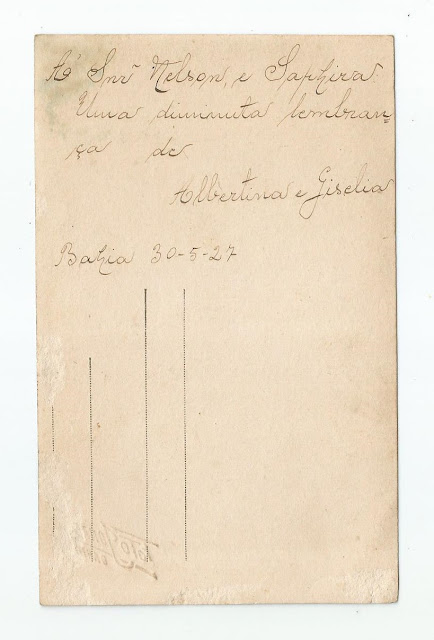 Aó Snr Nelson, e Saphira
Uma diminuta lembran-
ça de
Albertina e Giselia
Bahia 30-5-27